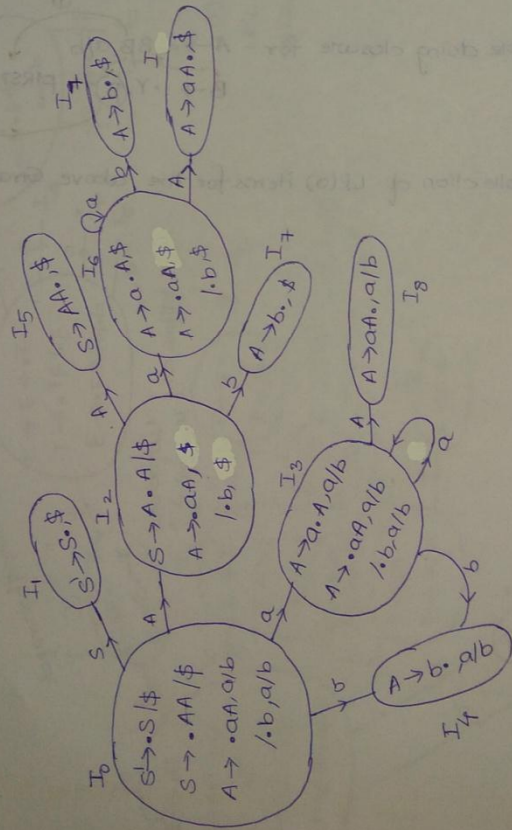 I0
S'→•S/$
S→•AA/$
A→•aA,a/b
/•b,a/b
S
I1
S'→S•,$
A
I2
S→A•A/$
A→•aA,$
/•b,$
A
I5
S→AA•,$
a
I6
A→a•A,$
A→•aA,$
/•b,$
a
b
I7
A→b•,$
A
I
A→aA•,$
b
I7
A→b•,$
a
I3
A→a•A,a/b
A→•aA,a/b
/•b,a/b
A
A→aA•,a/b
I8
a
b
b
A→b•,a/b
I4